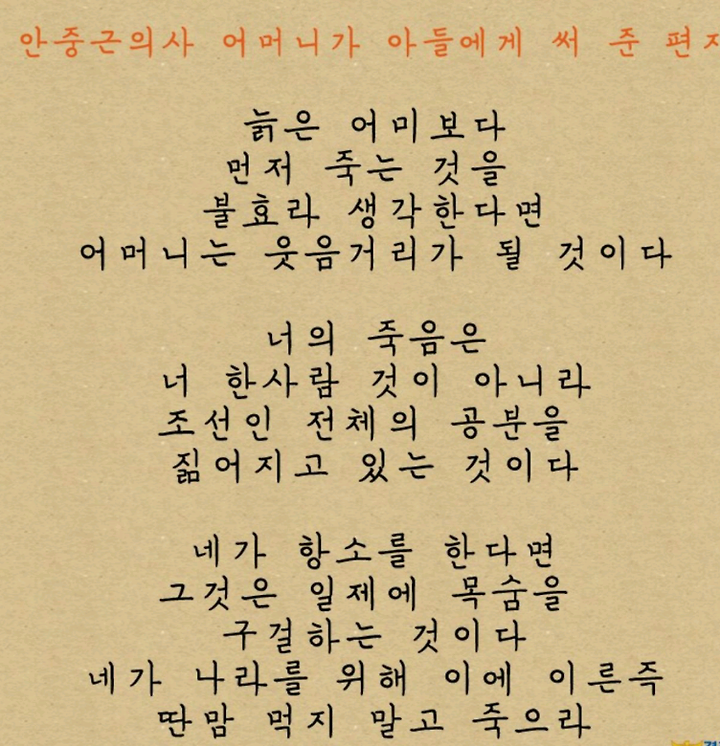 안중근의사 어머니가 아들에게 써 준 편지
늙은 어미보다
먼저 죽는 것을
불효라 생각한다면
어머니는 웃음거리가 될 것이다
너의 죽음은
너 한사람 것이 아니라
조선인 전체의 공분을
짊어지고 있는 것이다
네가 항소를 한다면
그것은 일제에 목숨을
구걸하는 것이다
네가 나라를 위해 이에 이른즉
딴맘 먹지 말고 죽으라